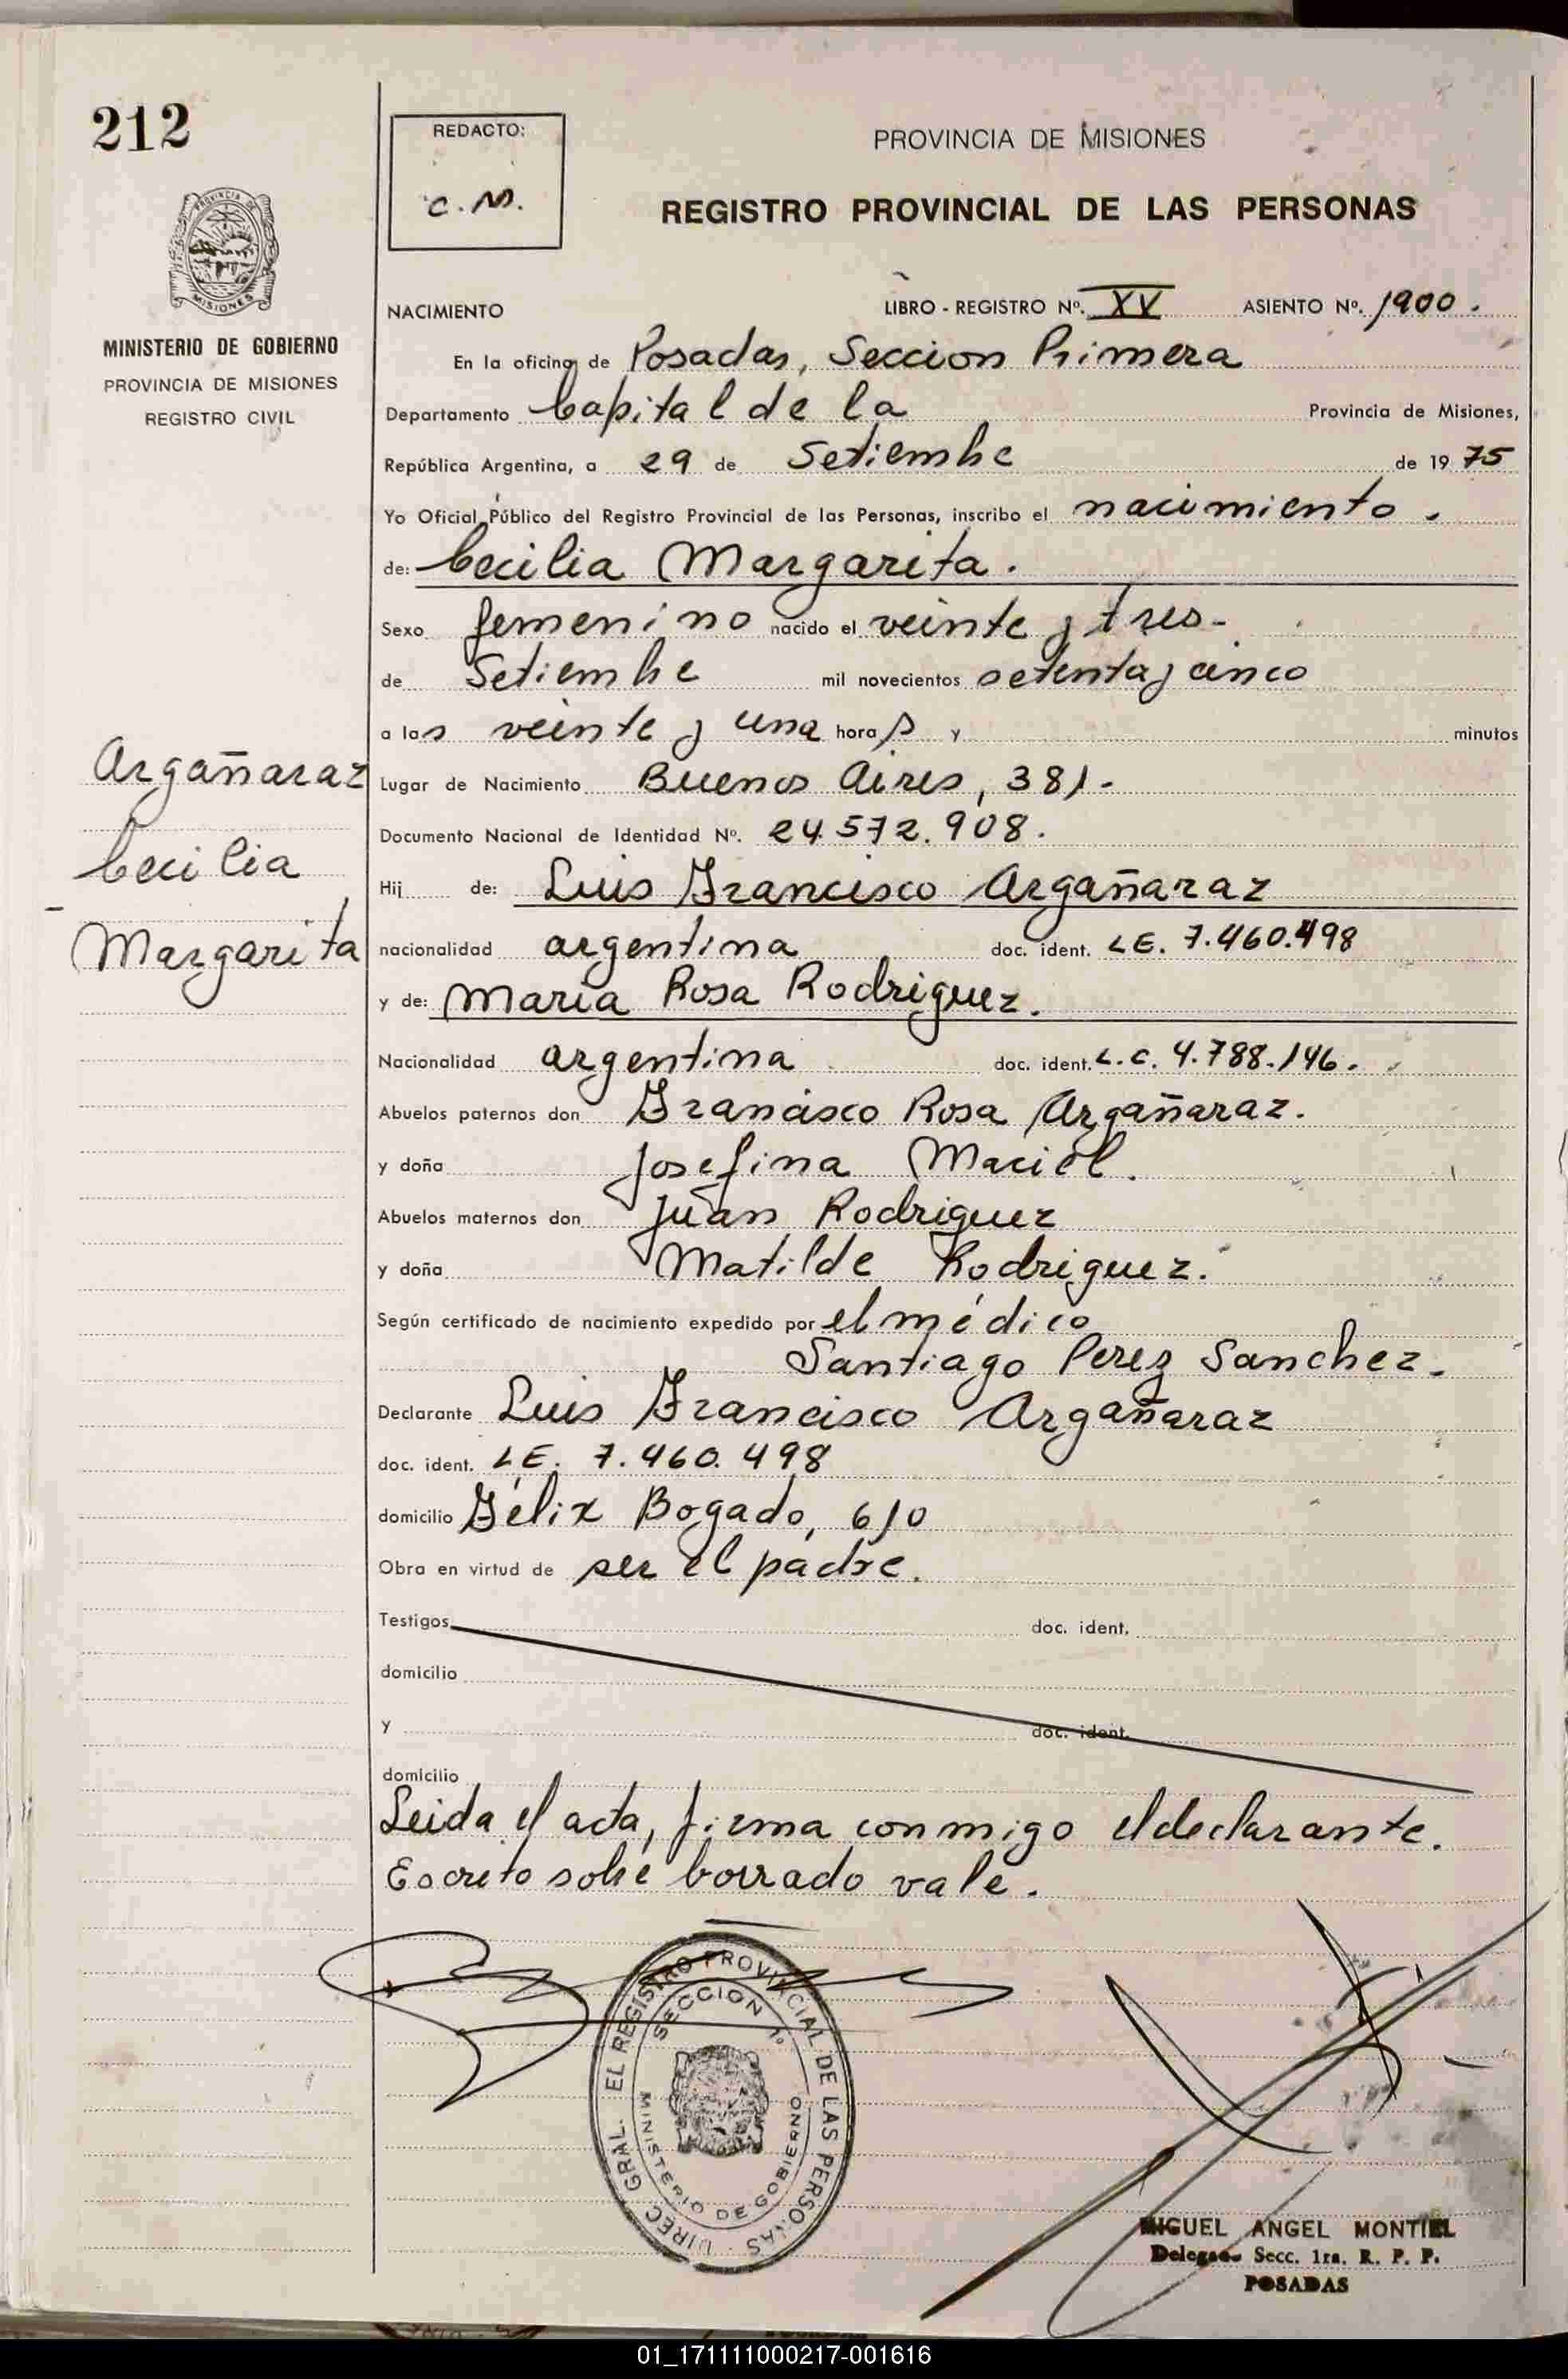 212
REDACTO:
C. M.
PROVINCIA DE MISIONES
REGISTRO PROVINCIAL DE LAS PERSONAS
MISIONES
MINISTERIO DE GOBIERNO
PROVINCIA DE MISIONES
REGISTRO CIVIL
NACIMIENTO LIBRO - REGISTRO Nº. XV ASIENTO Nº. 1900.
En la oficina de Posadas, Seccion Primera
Departamento Capital de la Provincia de Misiones,
República Argentina, a 29 de Setiembre de 1975
Yo Oficial Público del Registro Provincial de las Personas, inscribo el nacimiento.
de: Cecilia Margarita.
Sexo femenino nacido el veinte y tres-
de Setiembre mil novecientos setenta y cinco
a las veinte y una horas y minutos
Argañaraz
Cecilia
Margarita
Lugar de Nacimiento Buenos Aires, 381.-
Documento Nacional de Identidad Nº. 24.572.908.
Hij de: Luis Francisco Argañaraz
nacionalidad argentina doc. ident. LE. 7.460.498
y de: Maria Rosa Rodriguez.
Nacionalidad argentina doc. ident. L.C. 4.788.146.
Abuelos paternos don Francisco Rosa Argañaraz.
y doña Josefina Maciel.
Abuelos maternos don Juan Rodriguez
y doña Matilde Rodriguez.
Según certificado de nacimiento expedido por el médico
Santiago Perez Sanchez.
Declarante Luis Francisco Argañaraz
doc. ident. LE. 7.460.498
domicilio Félix Bogado, 610
Obra en virtud de ser el padre.
Testigos doc. ident.
domicilio
y doc. ident.
domicilio
Leida el acta, firma conmigo el declarante.
Escrito sobre borrado vale.
DIREC. GRAL. EL REGISTRO PROVINCIAL DE LAS PERSONAS
SECCION 1º
MINISTERIO DE GOBIERNO
MIGUEL ANGEL MONTIEL
Delegado Secc. 1ra. R. P. P.
POSADAS
01_171111000217-001616